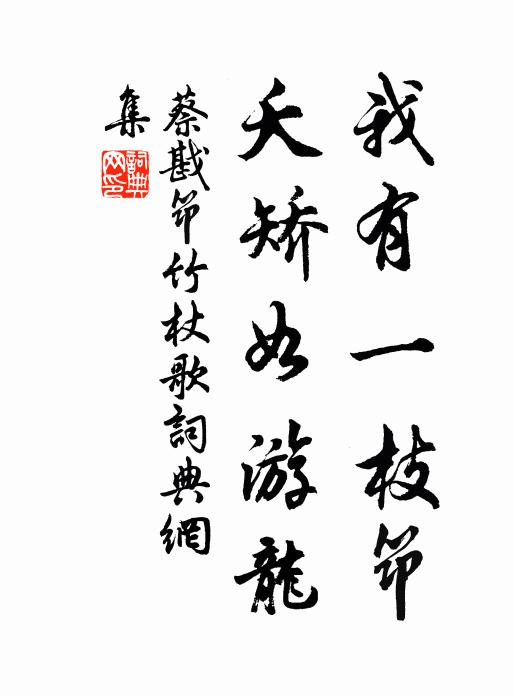 我有一枝筇
夭矯如游龍
蔡戡筇竹杖歌詞典網
集
詞典
网印